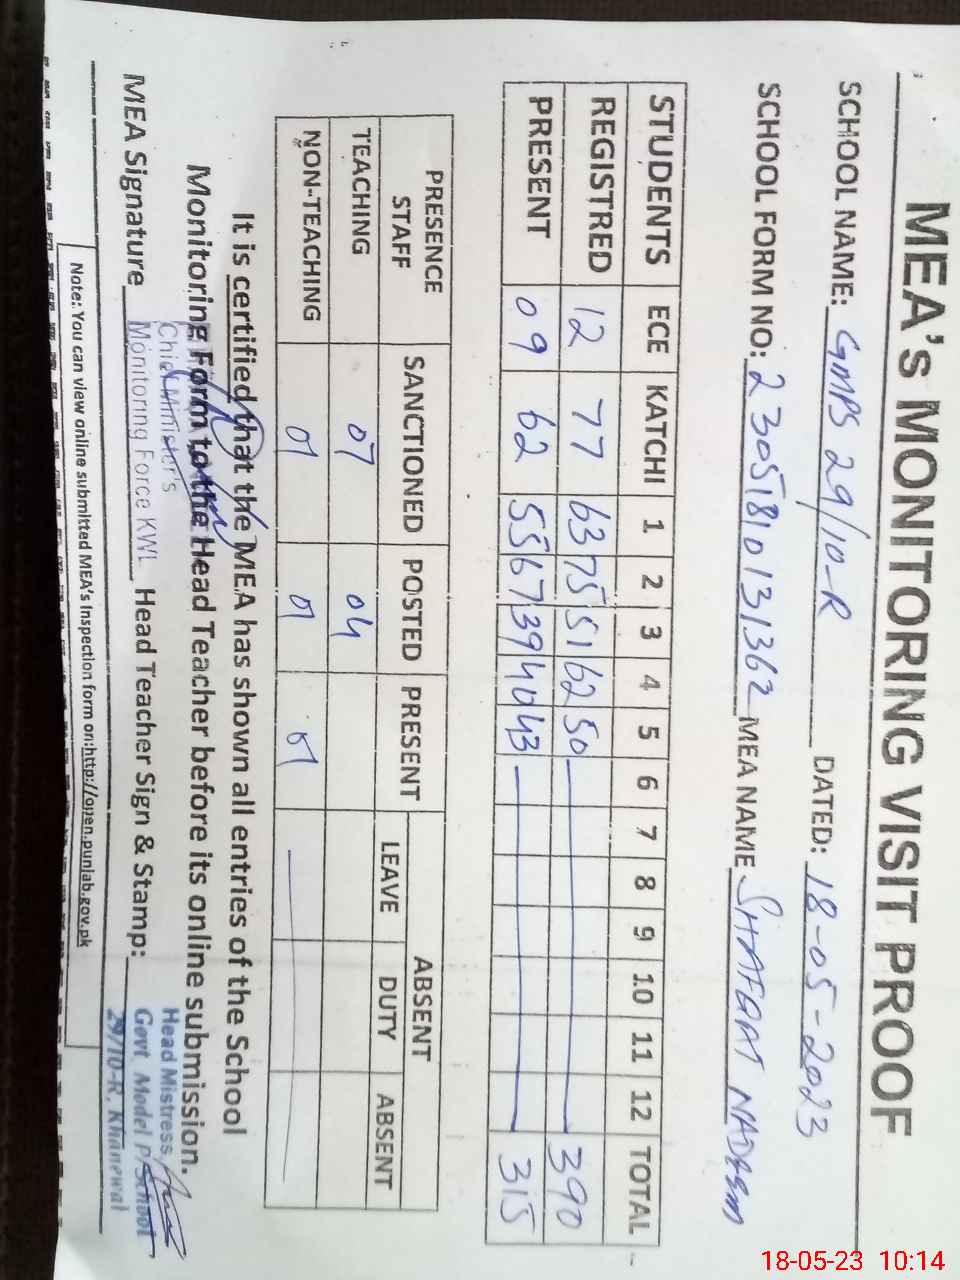 MEA'S MONITORING VISIT PROOF
SCHOOL NAME: GMPS 29/10-R DATED: 18-05-2023
SCHOOL FORM NO: 23051810131362 MEA NAME SHAFQAT NADEEM
STUDENTS ECE KATCHI 1 2 3 4 5 6 7 8 9 10 11 12 TOTAL
REGISTRED 12 77 63 75 51 62 50 390
PRESENT 09 62 55 67 39 40 43 315
PRESENCE STAFF SANCTIONED POSTED PRESENT ABSENT
LEAVE DUTY ABSENT
TEACHING 07 04
NON-TEACHING 01 01 01
It is certified that the MEA has shown all entries of the School
Monitoring Form to the Head Teacher before its online submission.
Chief Minister's
Monitoring Force KWL
MEA Signature Head Teacher Sign & Stamp:
Head Mistress
Govt Model P/School
29/10-R, Khanewal
Note: You can view online submitted MEA's Inspection form on:http://open.punjab.gov.pk
18-05-23 10:14